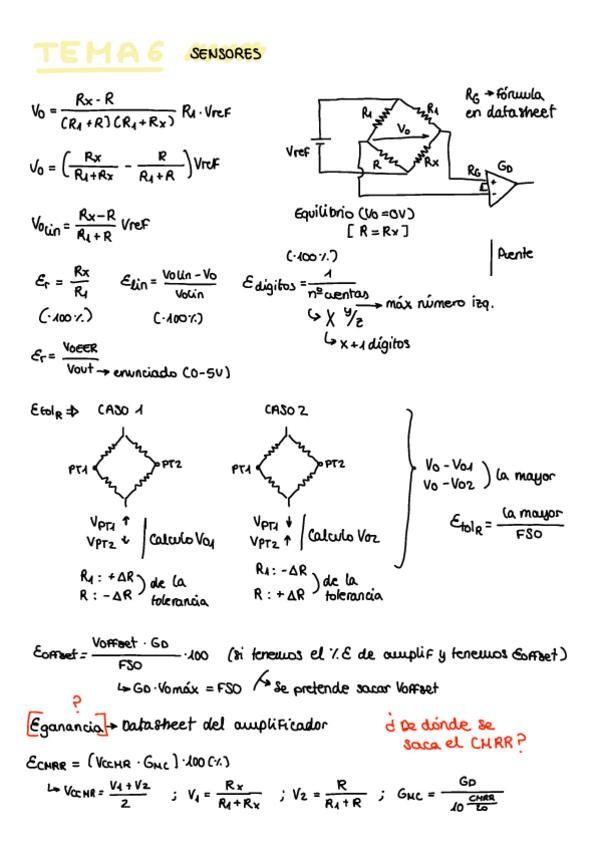 TEMA 6 SENSORES
Vo = Rx - R / (R1 + R)(R1 + Rx) R1 · Vref
Vo = (Rx / R1+Rx - R / R1+R) Vref
Volin = Rx-R / R1+R Vref
RG → fórmula
en datasheet
R1 R1
Vo
Vref
R Rx
RG GD
+
-
Equilibrio (Vo = 0V)
[ R = Rx ]
Puente
Er = Rx / R1
(·100%)
Elin = Volin - Vo / Volin
(·100%)
(·100%)
Edigitos = 1 / nº cuentas → máx número izq.
↳ X y/z
↳ x+1 dígitos
Er = VoEER / Vout → enunciado (0-5V)
EtolR ⇒ CASO 1 CASO 2
PT1 PT2 PT1 PT2
VPT1 ↑
VPT2 ↓
Calculo Vo1
VPT1 ↓
VPT2 ↑
Calculo Vo2
R1 : +ΔR
R : -ΔR
de la
tolerancia
R1 : -ΔR
R : +ΔR
de la
tolerancia
Vo - Vo1
Vo - Vo2
la mayor
EtolR = la mayor / FSO
Eoffset = Voffset · GD / FSO · 100 (si tenemos el %E de amplif y tenemos Eoffset)
↳ GD · Vomáx = FSO ↳ Se pretende sacar Voffset
?
[Eganancia] → Datasheet del amplificador
¿De dónde se
saca el CMRR?
ECMRR = (VCCMR · GMC) · 100 (%)
↳ VCCMR = V1 + V2 / 2 ; V1 = Rx / R1 + Rx ; V2 = R / R1 + R ; GMC = GD / 10 CMRR/20